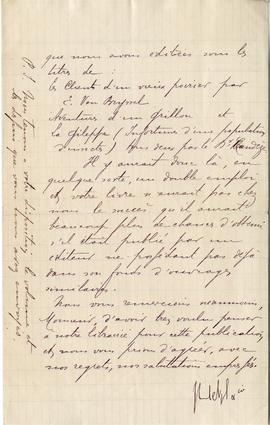 que nous avons éditées sous les
titres de :
les Clients d'un vieux poirier par
E. Van Bruyssel
Aventures d'un Grillon et
la Gileppe (Infortunes d'une population
d'insectes) tous deux par le Dr Candèze
Il y aurait donc là, en
quelque sorte, un double emploi
et votre livre n'aurait pas chez
nous le succès qu'il aurait
beaucoup plus de chances d'obtenir
s'il était publié par un
éditeur ne possédant pas déjà
dans son fonds d'ouvrages
similaires.
Nous vous remercions néanmoins,
Monsieur, d'avoir bien voulu penser
à notre librairie pour cette publication,
et nous vous prions d'agréer, avec
nos regrets, nos salutations empressées.
P.S. Nous tenons à votre disposition le volume et
les que vous nous avez envoyés